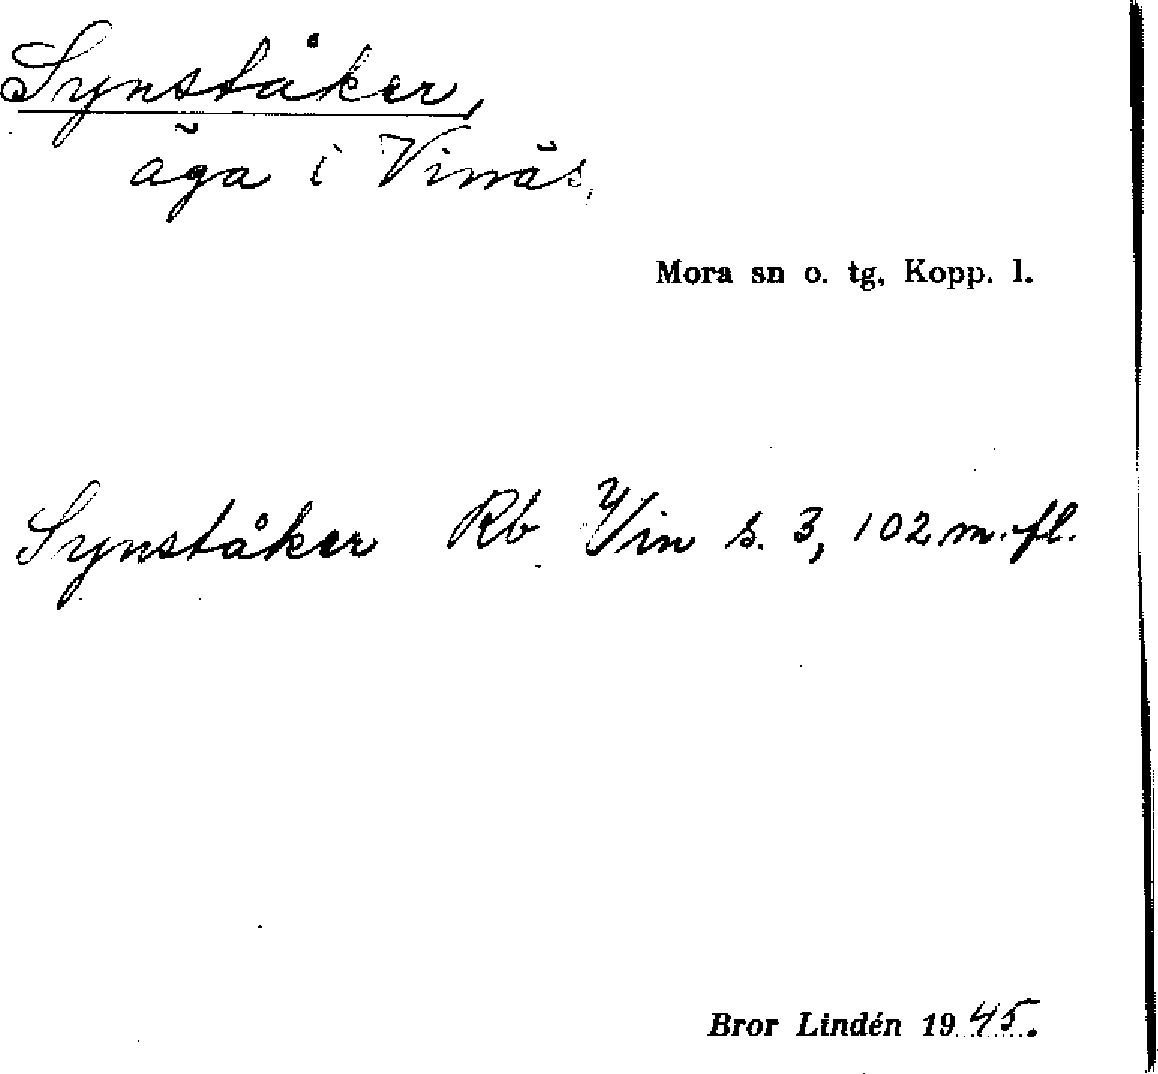 Synståker,
äga i Vinäs,
Mora sn o. tg, Kopp. l.
Synståker Rb Vin s. 3, 102 m. fl.
Bror Lindén 1945.